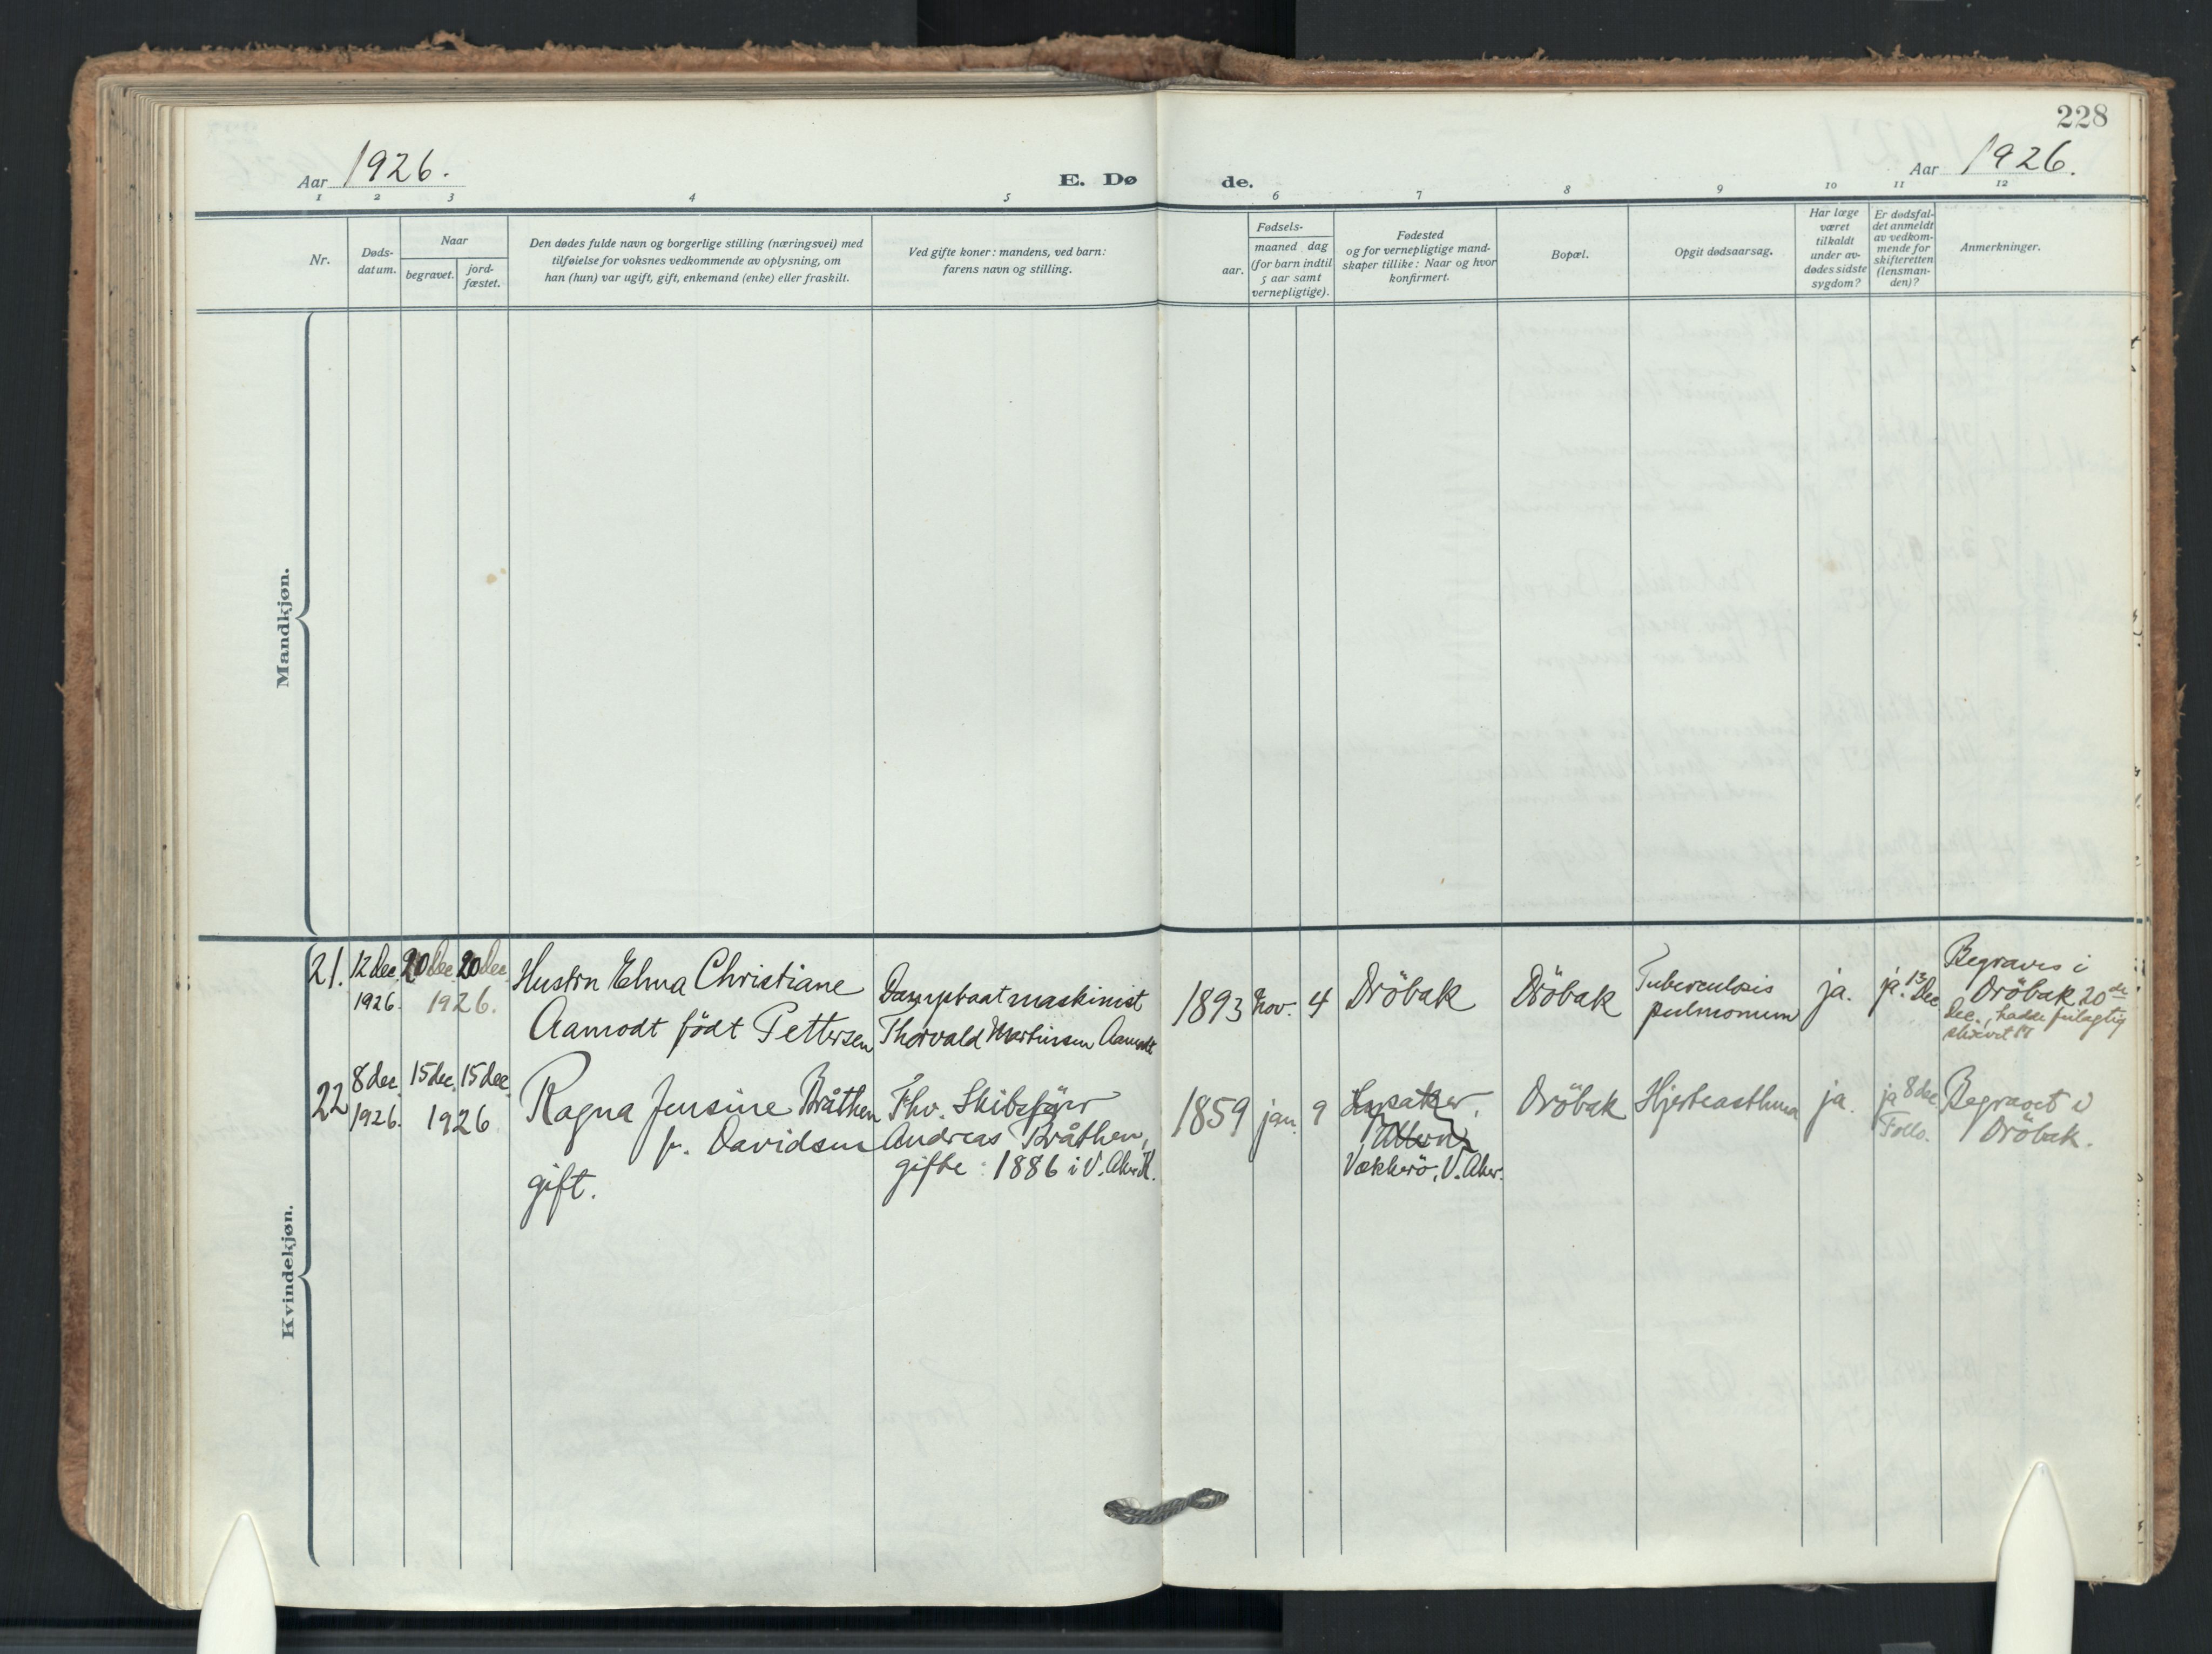 228
Aar 1926.
E. Dø
de.
Aar 1926.
1 2 3 4 5 6 7 8 9 10 11 12
Nr.
Døds-
datum.
Naar
begravet.
jord-
fæstet.
Den dødes fulde navn og borgerlige stilling (næringsvei) med
tilføielse for voksnes vedkommende av oplysning, om
han (hun) var ugift, gift, enkemand (enke) eller fraskilt.
Ved gifte koner: mandens, ved barn:
farens navn og stilling.
Fødsels-
aar.
maaned dag
(for barn indtil
5 aar samt
vernepligtige).
Fødested
og for vernepligtige mand-
skaper tillike: Naar og hvor
konfirmert.
Bopæl.
Opgit dødsaarsag.
Har læge
været
tilkaldt
under av-
dødes sidste
sygdom?
Er dødsfal-
det anmeldt
av vedkom-
mende for
skifteretten
(lensman-
den)?
Anmerkninger.
Mandkjøn.
Kvindekjøn.
21.
12 dec.
1926.
20 dec. 20 dec.
1926.
Hustru Elma Christiane
Aamodt födt Pettersen
Dampbaatmaskinist
Thorvald Martinsen Aamodt
1893 nov. 4
Dröbak
Dröbak
Tuberculosis
pulmonum
ja.
ja. 13 dec
Begraves i
Dröbak 20de
dec., hadde feilagtig
skrevet 17
22
8 dec.
1926.
15 dec. 15 dec.
1926
Ragna Jensine Bråthen
f. Davidsen
gift.
Fhv. Skibsfører
Andreas Bråthen,
gifte: 1886 i V. Aker K.
1859 jan. 9
Lysaker,
Ullern
Vækkerö, V. Aker.
Dröbak
Hjerteasthma
ja.
ja 8 dec.
Follo.
Begravet i
Dröbak.